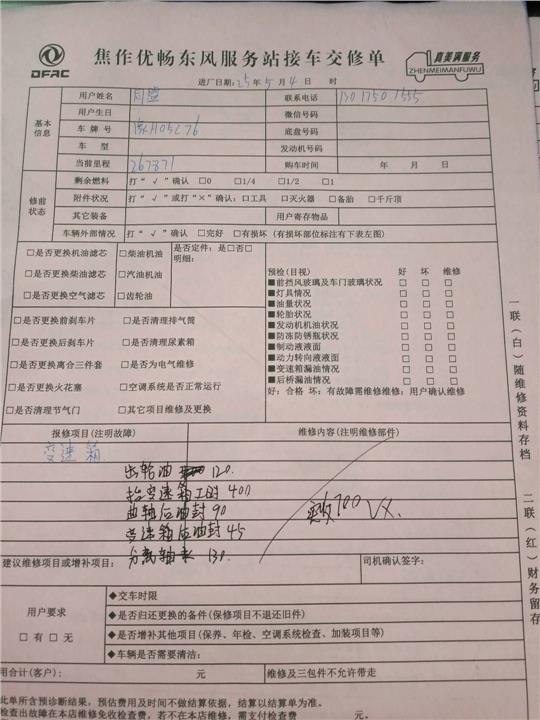 DFAC
焦作优畅东风服务站接车交修单
真美满服务
ZHENMEIMANFUWU
进厂日期:25年5月4日 时
基本信息
用户姓名
联系电话
用户生日
微信号码
车牌号
底盘号码
车型
发动机号码
当前里程 267371
购车时间 年 月 日
修前状态
剩余燃料 打“√”确认 □0 □1/4 □1/2 □1
附件状况 打“√”或打“×”确认:□工具 □灭火器 □备胎 □千斤顶
其它装备
用户寄存物品
车辆外部情况 打“√”确认 □完好 □有损坏(有损坏部位标注有下表左图)
□是否更换机油滤芯 □柴油机油 是否定件:是□否□
明细:
□是否更换柴油滤芯 □汽油机油
□是否更换空气滤芯 □齿轮油
□是否更换前刹车片 □是否清理排气筒
□是否更换后刹车片 □是否清理尿素箱
□是否更换离合三件套 □是否为电气维修
□是否更换火花塞 □空调系统是否正常运行
□是否清理节气门 □其它项目维修及更换
预检(目视) 好 坏 维修
■前挡风玻璃及车门玻璃状况 □ □ □
■灯具情况 □ □ □
■油量状况 □ □ □
■轮胎状况 □ □ □
■发动机机油状况 □ □ □
■防冻防锈瓶状况 □ □ □
■制动液液面 □ □ □
■动力转向液液面 □ □ □
■变速箱漏油情况 □ □ □
■后桥漏油情况 □ □ □
好:合格 坏:有故障需维修维修:用户确认维修
报修项目(注明故障)
维修内容(注明维修部件)
变速箱
齿轮油 120.
抬变速箱工时 400
曲轴后油封 90
变速箱后油封 45
分离轴承 130.
700 VX.
建议维修项目或增补项目:
司机确认签字:
用户要求
□有□无
◆交车时限
◆是否归还更换的备件(保修项目不退还旧件)
◆是否增补其他项目(保养、年检、空调系统检查、加装项目等)
◆车辆是否需要清洁:
用合计(客户): 元
维修及三包件不允许带走
此单所含预诊断结果,预估费用及时间不做结算依据,结算以结算单为准。
检查出故障在本店维修免收检查费,若不在本店维修,需支付检查费 元
一联(白)随维修资料存档
二联(红)财务留存